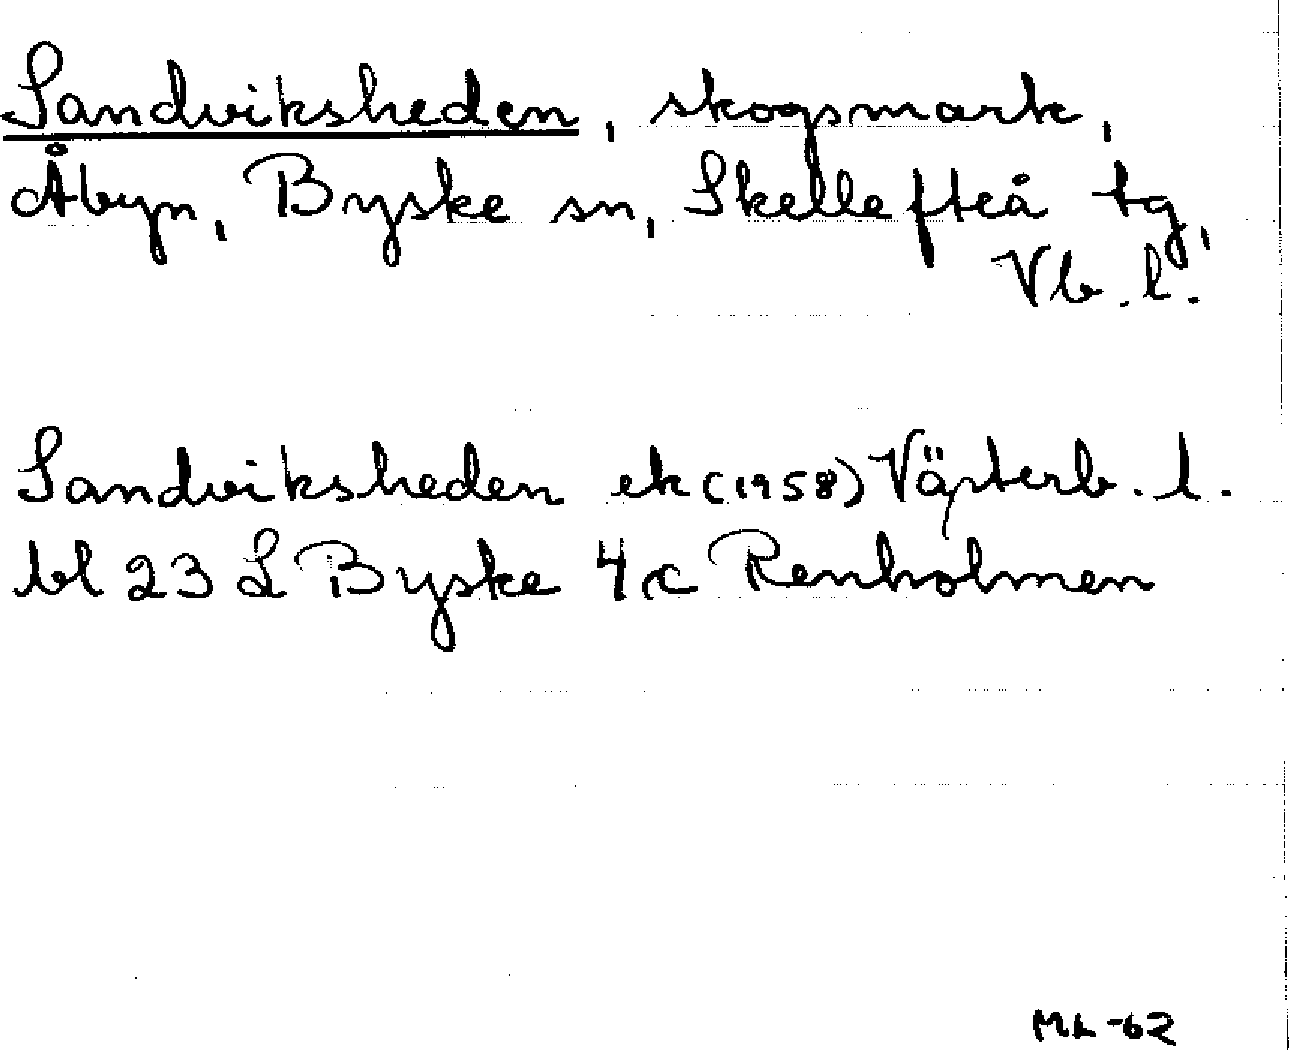 Sandviksheden, skogsmark,
Åbyn, Byske sn, Skellefteå tg,
Vb. l.
Sandviksheden ek (1958) Västerb. l.
bl 23 L Byske 4 c Renholmen
ML -62